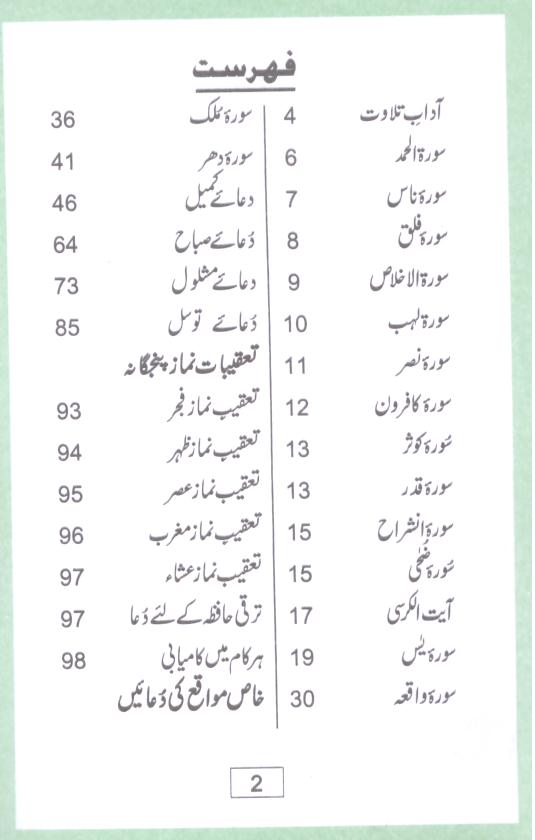 فہرست
آدابِ تلاوت 4
سورۃ الحمد 6
سورۂ ناس 7
سورۂ فلق 8
سورۃ الاخلاص 9
سورۃ لہب 10
سورۂ نصر 11
سورۂ کافرون 12
سُورۂ کوثر 13
سورۂ قدر 13
سورۃ انشراح 15
سُورۂ ضُحٰی 15
آیت الکرسی 17
سورۂ یٰس 19
سورۂ واقعہ 30
سورۂ مُلک 36
سورۂ دھر 41
دعائے کمیل 46
دُعائے صباح 64
دعائے مشلول 73
دُعائے توسل 85
تعقیبات نماز پنجگانہ
تعقیبِ نماز فجر 93
تعقیبِ نماز ظہر 94
تعقیبِ نماز عصر 95
تعقیبِ نماز مغرب 96
تعقیبِ نماز عشاء 97
ترقی حافظہ کے لئے دُعا 97
ہر کام میں کامیابی 98
خاص مواقع کی دُعائیں
2